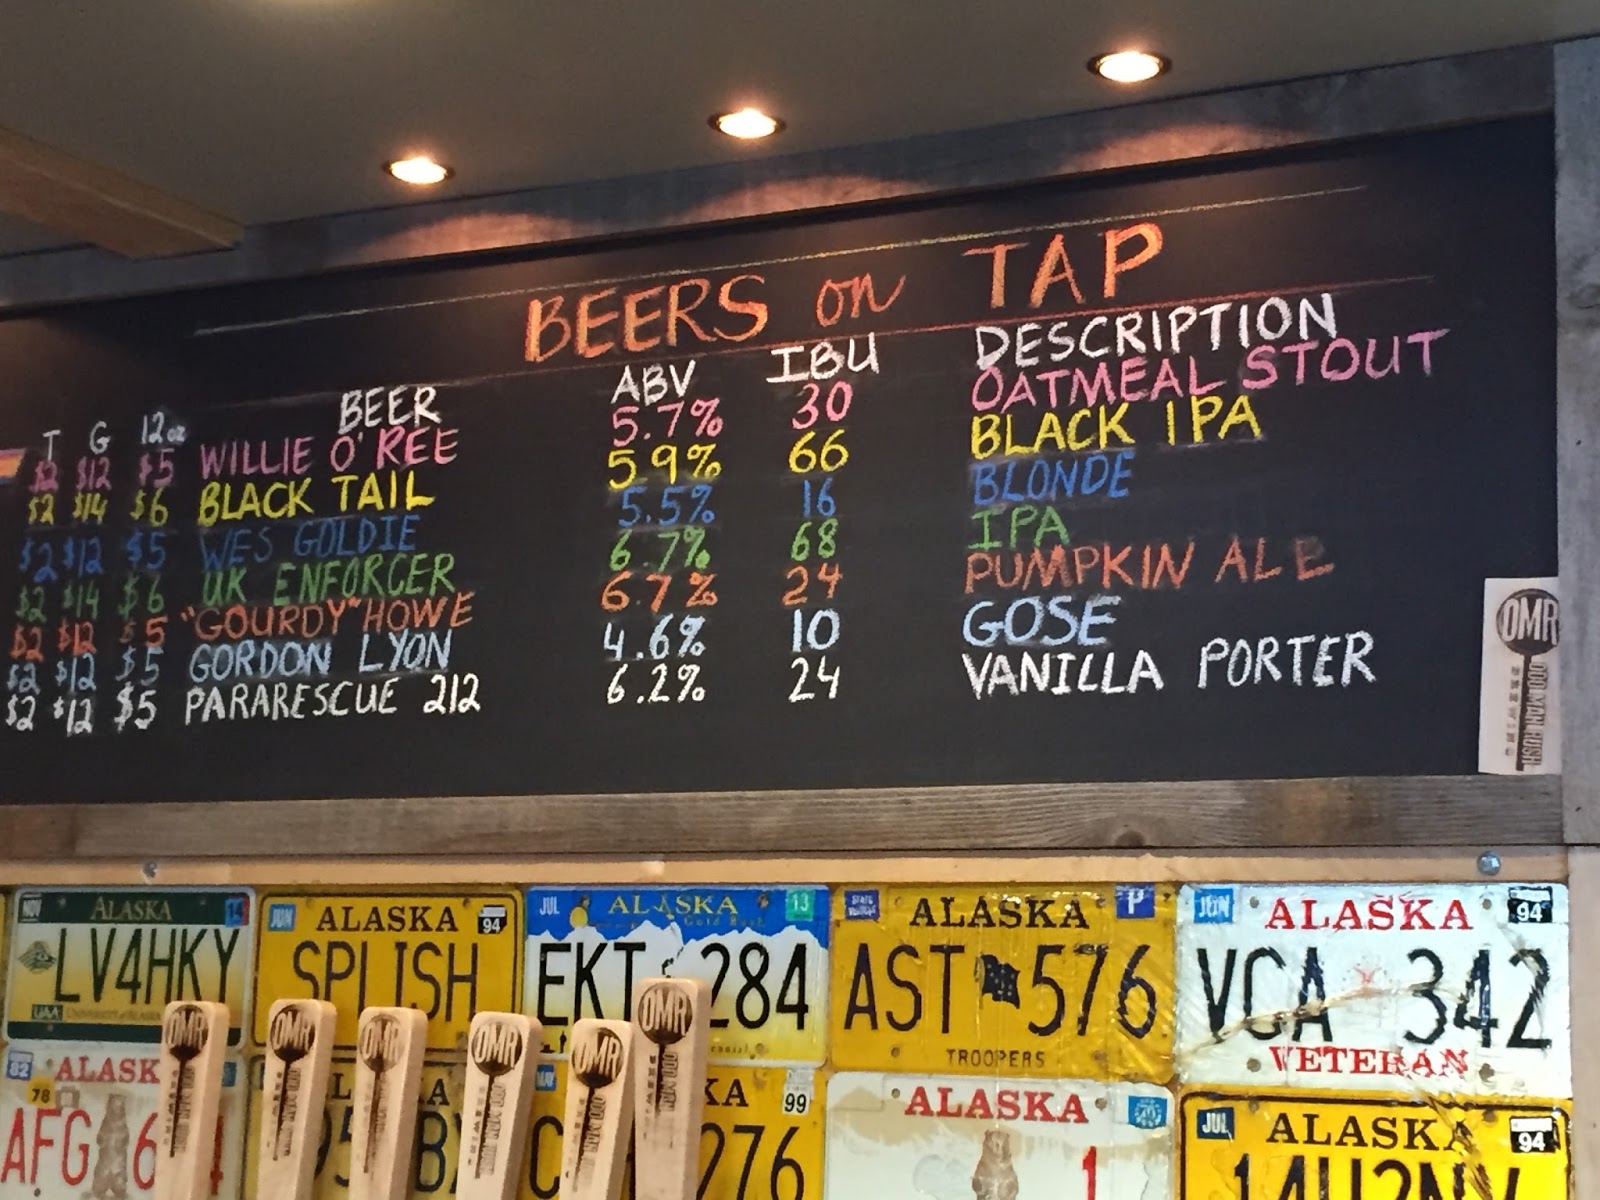 BEERS on TAP
T G 12oz BEER ABV IBU DESCRIPTION
$2 $12 $5 WILLIE O'REE 5.7% 30 OATMEAL STOUT
$2 $14 $6 BLACK TAIL 5.9% 66 BLACK IPA
$2 $12 $5 WES GOLDIE 5.5% 16 BLONDE
$2 $14 $6 UK ENFORCER 6.7% 68 IPA
$2 $12 $5 "GOURDY" HOWE 6.7% 24 PUMPKIN ALE
$2 $12 $5 GORDON LYON 4.6% 10 GOSE
$2 $12 $5 PARARESCUE 212 6.2% 24 VANILLA PORTER
OMR
ODD MAN RUSH
BREWING
NOV ALASKA 14
LV4HKY
UAA UNIVERSITY OF ALASKA
JUN ALASKA 94
SPLISH
JUL ALASKA 13
Gold Rush
EKT 284
ALASKA P
AST 576
TROOPERS
JUN ALASKA 94
VCA 342
VETERAN
OMR
OMR
OMR
OMR
OMR
OMR
ODD MAN
82 ALASK
78
AFG 6
MAY
KA 99
276
ALASKA
1
JUL ALASKA 94